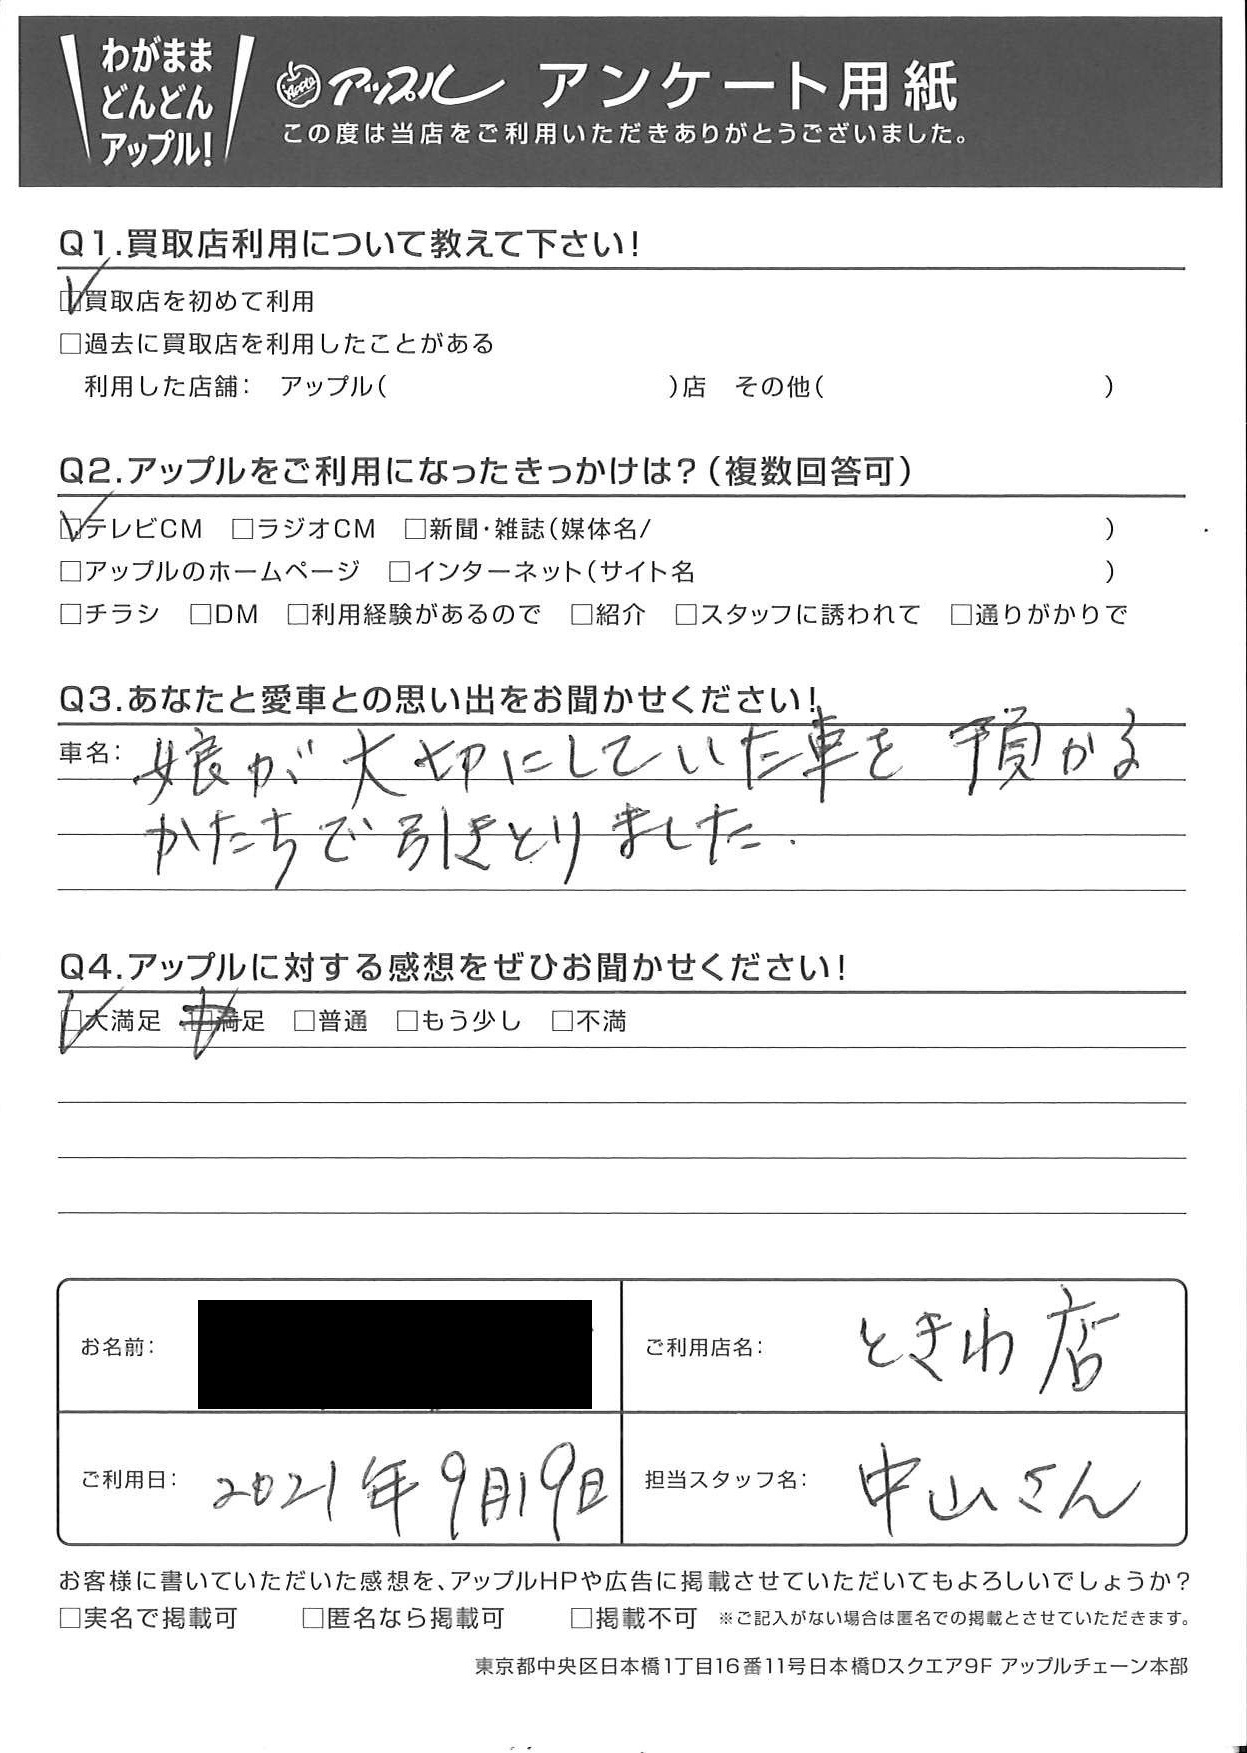 わがまま
どんどん
アップル!
アップル アンケート用紙
この度は当店をご利用いただきありがとうございました。
Q1.買取店利用について教えて下さい!
☑買取店を初めて利用
□過去に買取店を利用したことがある
利用した店舗: アップル( )店 その他( )
Q2.アップルをご利用になったきっかけは?(複数回答可)
☑テレビCM □ラジオCM □新聞・雑誌(媒体名/ )
□アップルのホームページ □インターネット(サイト名 )
□チラシ □DM □利用経験があるので □紹介 □スタッフに誘われて □通りがかりで
Q3.あなたと愛車との思い出をお聞かせください!
車名: 娘が大切にしていた車を預かる
かたちで引きとりました.
Q4.アップルに対する感想をぜひお聞かせください!
☑大満足 □満足 □普通 □もう少し □不満
お名前:
ご利用店名: ときわ店
ご利用日: 2021年9月19日
担当スタッフ名: 中山さん
お客様に書いていただいた感想を、アップルHPや広告に掲載させていただいてもよろしいでしょうか?
□実名で掲載可 □匿名なら掲載可 □掲載不可 ※ご記入がない場合は匿名での掲載とさせていただきます。
東京都中央区日本橋1丁目16番11号日本橋Dスクエア9F アップルチェーン本部